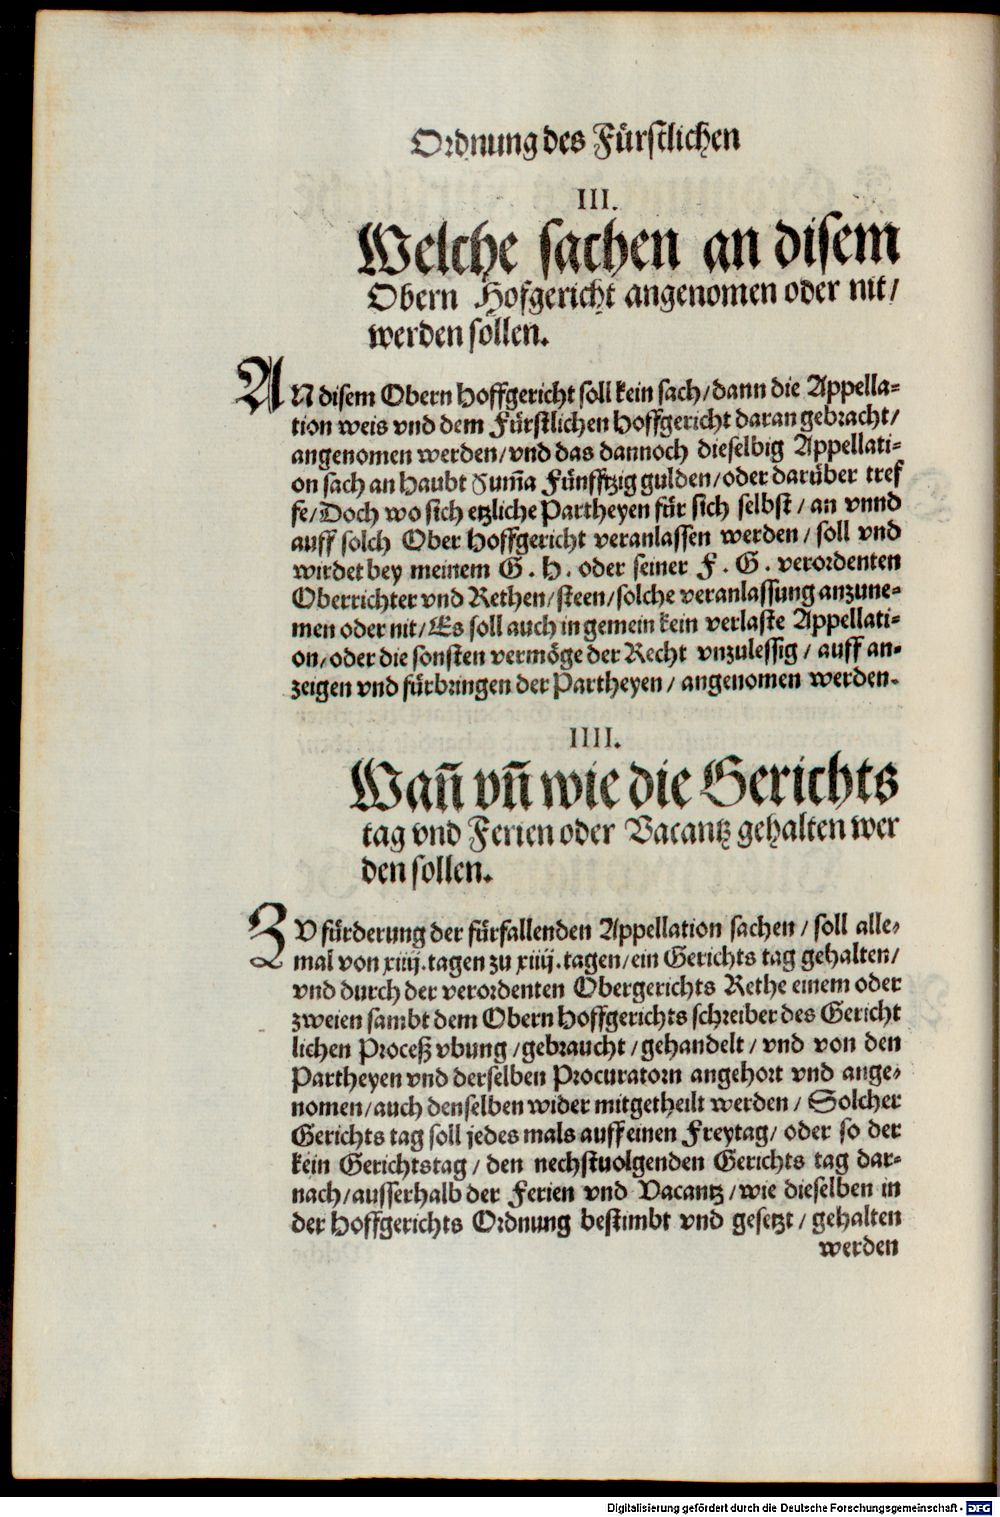 Ordnung des Fürstlichen
III.
Welche sachen an disem
Obern Hofgericht angenomen oder nit/
werden sollen.
AN disem Obern Hoffgericht soll kein sach/dann die Appella-
tion weis vnd dem Fürstlichen Hoffgericht daran gebracht/
angenomen werden/vnd das dannoch dieselbig Appellati-
on sach an Haubt Sum̄a Fünfftzig gulden/oder darüber tref
fe/Doch wo sich etzliche Partheyen für sich selbst/an vnnd
auff solch Ober Hoffgericht veranlassen werden/soll vnd
wirdet bey meinem G. H. oder seiner F. G. verordenten
Oberrichter vnd Rethen/steen/solche veranlassung anzune-
men oder nit/Es soll auch in gemein kein verlaste Appellati-
on/oder die sonsten vermöge der Recht vnzulessig/auff an-
zeigen vnd fürbringen der Partheyen/angenomen werden.
IIII.
Wan̄ vn̄ wie die Gerichts
tag vnd Ferien oder Vacantz gehalten wer
den sollen.
ZV fürderung der fürfallenden Appellation sachen/soll alle-
mal von xiiij.tagen zu xiiij.tagen/ein Gerichts tag gehalten/
vnd durch der verordenten Obergerichts Rethe einem oder
zweien sambt dem Obern Hoffgerichts schreiber des Gericht
lichen Proceß vbung/gebraucht/gehandelt/vnd von den
Partheyen vnd derselben Procuratorn angehort vnd ange-
nomen/auch denselben wider mitgetheilt werden/Solcher
Gerichts tag soll jedes mals auff einen Freytag/oder so der
kein Gerichtstag/den nechstuolgenden Gerichts tag dar-
nach/ausserhalb der Ferien vnd Vacantz/wie dieselben in
der Hoffgerichts Ordnung bestimbt vnd gesetzt/gehalten
werden
Digitalisierung gefördert durch die Deutsche Forschungsgemeinschaft - DFG